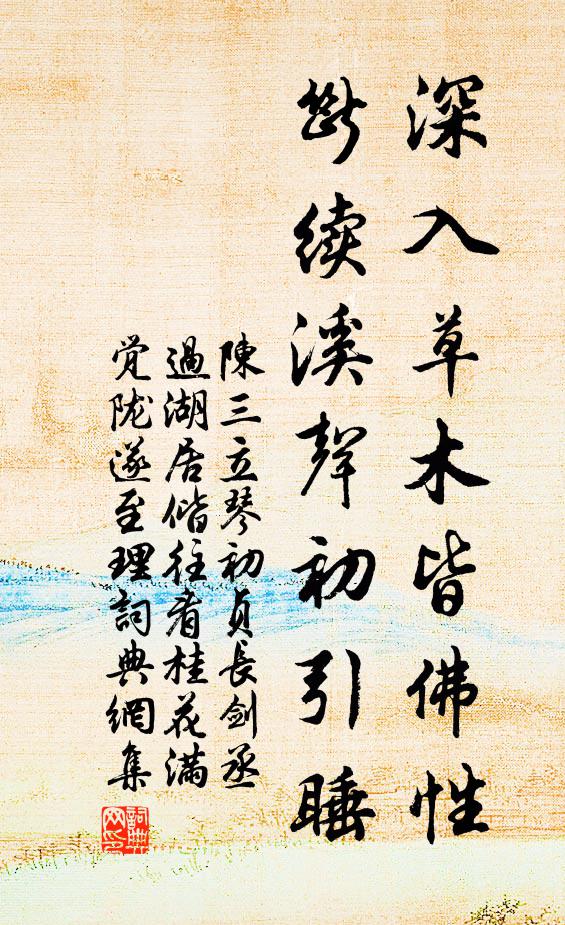 深入草木皆佛性
斷续溪聲初引睡
陳三立琴初貞長劍丞
過湖居偕往看桂花满
觉陇遂至理詞典網集
詞典网印